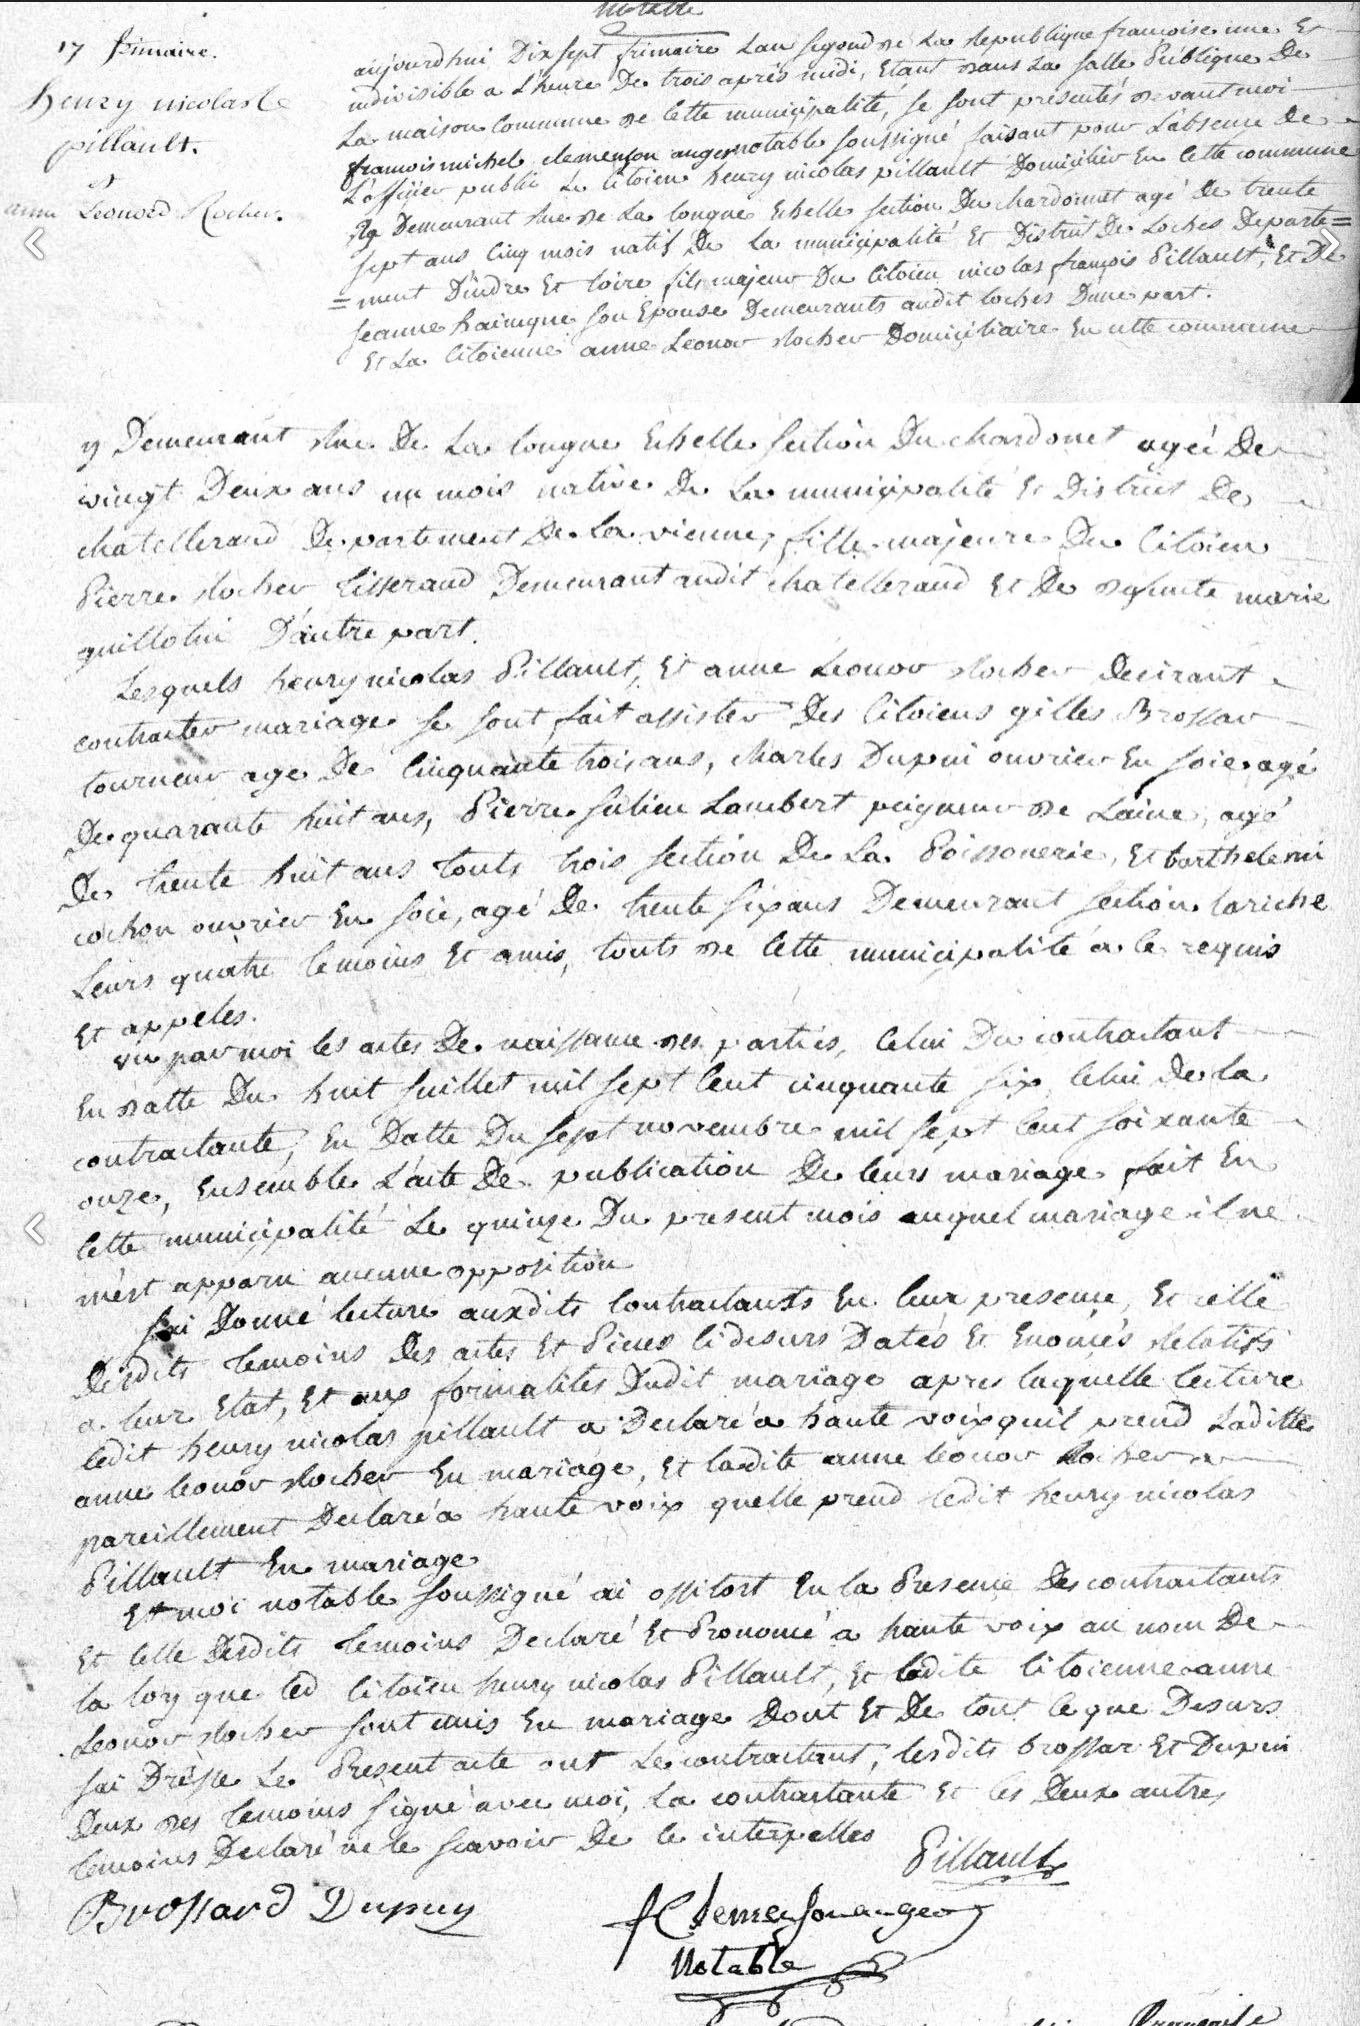 notable
17 frimaire.
henry nicolas
pillault.
et
anne Leonord Rocher.
aujourdhui Dix sept frimaire Lan segond de La Republique francoise une Et
indivisible a L'heure De trois après midi, Etant dans La salle Publique De
La maison Commune de Cette municipalité, se sont présentés devant moi
francois michel clemenson anger notable soussigné faisant pour L'absence De
L'officier public Le Citoien henry nicolas pillault Domicilier En Cette commune
Demeurant Rue de La longue Echelle section Du chardonnet agé De trente
sept ans Cinq mois natif De La municipalité Et District De Loches Departe=
=ment D'indre Et Loire fils majeur Du Citoien nicolas françois Pillault, Et De
Jeanne son Epouse Demeurants audit loches D'une part.
Et La Citoienne anne Leonor Rocher Domiciliaire En cette commune
y Demeurant Rue De La longue Echelle section Du chardonet agée De
vingt Deux ans un mois native De La municipalité Et District De
chatelleraud Departement De La vienne, fille majeure Du Citoien
Pierre Rocher Tisserand Demeurant audit chatelleraud Et De defunte marie
guillotin D'autre part.
Lesquels henry nicolas Pillault, Et anne Leonor Rocher Desirant
contracter mariage se sont fait assister Des Citoiens gilles Brossar
tourneur age De Cinquante trois ans, charles Dupui ouvrier En soie agé
De quarante huit ans, Pierre Julien Lambert peigneur de Laine, agé
De trente huit ans touts trois section De La Poissonerie, Et barthelemi
cochon ouvrier En soie, agé De trente six ans Demeurant section lariche
Leurs quatre temoins Et amis, touts de Cette municipalité a ce requis
Et appeles.
vu par moi les actes De naissance des parties, Celui Du contractant
En datte Du huit Juillet mil sept Cent cinquante six, Celui De la
contractante, En Datte Du sept novembre mil sept Cent soixante
onze, Ensemble L'acte De publication De leurs mariage fait En
Cette municipalité Le quinze Du present mois auquel mariage il ne
m'est apparu aucune opposition
J'ai Donné lecture auxdits Contractants En leur presence, Et celle
Desdits temoins Des actes Et Pieces Cidesurs Datés Et Enoncés Relatifs
a leur Etat, Et aux formalites Dudit mariage apres laquelle lecture
ledit henry nicolas pillault a Declaré a haute voix quil prend Laditte
anne leonor Rocher En mariage, Et ladite anne leonor Rocher a
pareillement Declaré a haute voix quelle prend ledit henry nicolas
Pillault En mariage
Et moi notable soussigné ai ossitost En la Presence Des contractants
Et Celle Desdits temoins Declaré Et Prononcé a haute voix au nom De
la loy que led Citoien henry nicolas Pillault, Et ladite Citoienne anne
Leonor Rocher sont unis En mariage Dont Et De tout Ce que Desurs
J'ai Dressé Le Present acte ont Le contractant, lesdits brossar Et Dupui
Deux des temoins signé avec moi, La contractante Et les Deux autres
temoins Declaré ne le scavoir De ce interpelles
Pillault
Brossard Dupuy
Notable